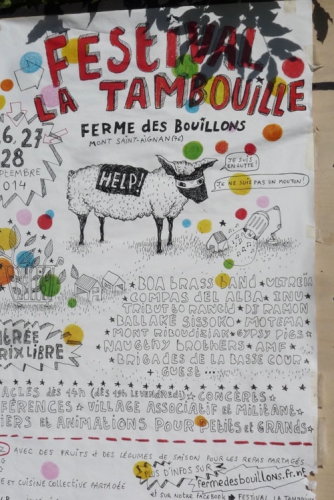 FESTIVAL
LA TAMBOUILLE
FERME DES BOUILLONS
MONT SAINT-AIGNAN (76)
6, 27
28
PTEMBRE
014
HELP!
JE SUIS
EN LUTTE!
JE NE SUIS PAS UN MOUTON!
★ BOA BRASS BAND ★ ULTREÏA
COMPAS DEL ALBA ★ INU
TRIBUT TO RANCID ★ DJ RAMON
BALLAKE SISSOKO ★ MOTEMA
MONT RIBOUDZIAK ★ GYPSY PIGS ★
NAUGHTY BROTHERS ★ AMF ★
BRIGADES DE LA BASSE COUR
+ GUEST ...
NTRÉE
PRIX LIBRE
ACLES DÈS 14H (DÈS 19H LE VENDREDI) ★ CONCERTS ★
FÉRENCES ★ VILLAGE ASSOCIATIF ET MILITANT ★
IERS ET ANIMATIONS POUR PETITS ET GRANDS ★
AVEC DES FRUITS & DES LÉGUMES DE SAISON POUR LES REPAS PARTAGÉS
PLUS D'INFOS SUR
ET CUISINE COLLECTIVE PARTAGÉE
fermedesbouillons.fr.nf
ET SUR NOTRE FACEBOOK FESTIVAL LA TAMBOUI